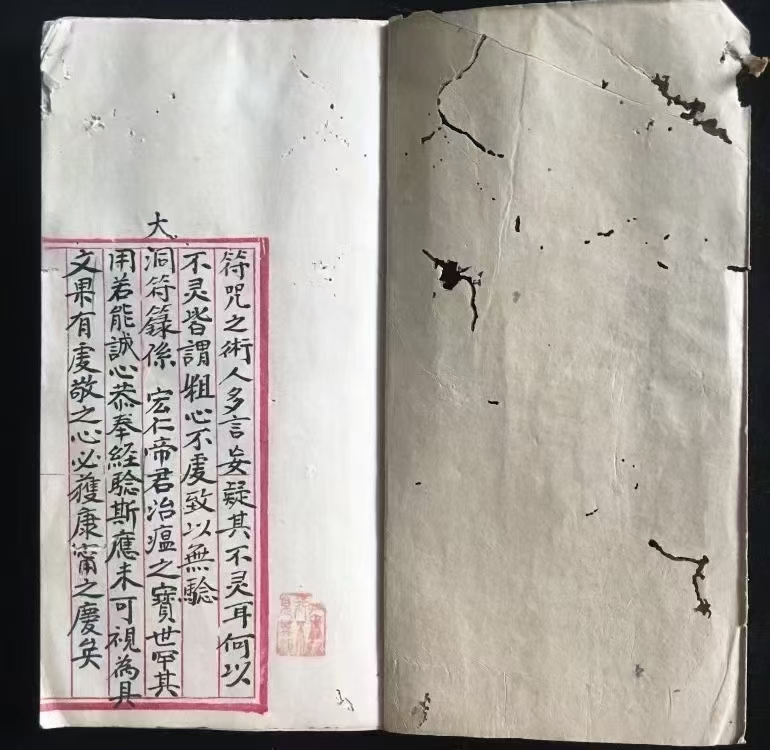 符咒之術人多言妄疑其不灵耳何以
不灵皆謂粗心不虔致以無騐
大洞符籙係 宏仁帝君治瘟之寶世罕其
用若能誠心恭奉経騐斯應未可視為具
文果有虔敬之心必獲康甯之慶矣